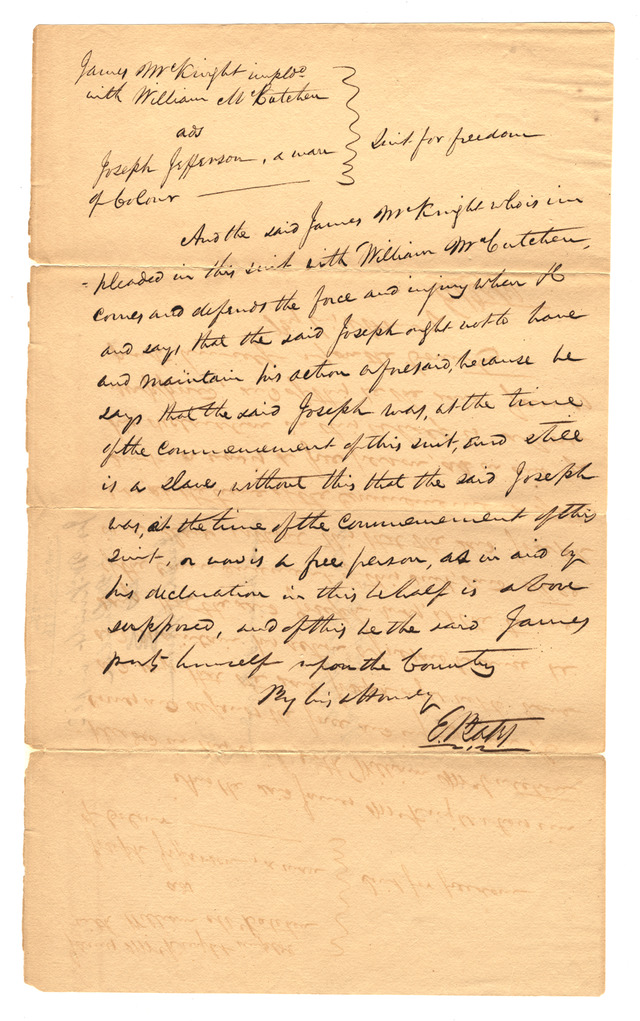 James McKnight impld
with William McCutchen
ads
Joseph Jefferson, a man
of Colour
Suit for freedom
And the said James McKnight who is im
-pleaded in this suit with William McCutchen,
comes and defends the force and injury when &c
and says that the said Joseph ought not to have
and maintain his action aforesaid, because he
says that the said Joseph was, at the time
of the commencement of this suit, and still
is a slave, without this that the said Joseph
was, at the time of the commencement of this
suit, or now is a free person, as in and by
his declaration in this behalf is above
supposed, and of this he the said James
puts himself upon the Country
By his attorney
E. Bates